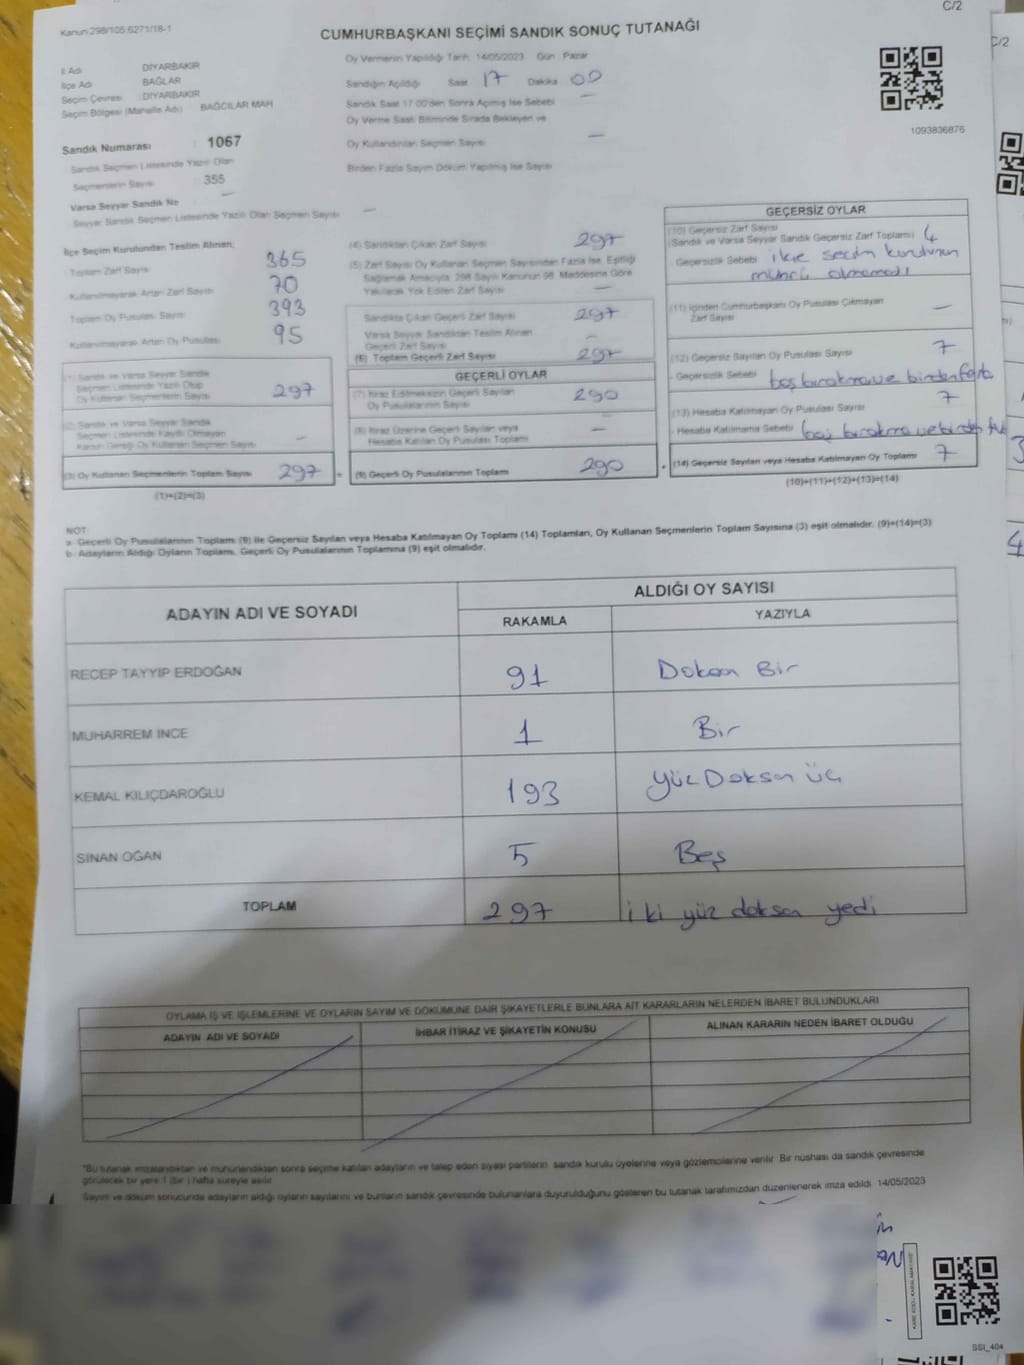 C/2
Kanun:298/105.6271/18-1
CUMHURBAŞKANI SEÇİMİ SANDIK SONUÇ TUTANAĞI
Oy Vermenin Yapıldığı Tarih 14/05/2023 Gün Pazar
İl Adı DİYARBAKIR
İlçe Adı BAĞLAR
Seçim Çevresi : DİYARBAKIR
Seçim Bölgesi (Mahalle Adı) BAĞCILAR MAH
Sandık Numarası : 1067
Sandık Seçmen Listesinde Yazılı Olan
Seçmenlerin Sayısı : 355
Varsa Seyyar Sandık No —
Seyyar Sandık Seçmen Listesinde Yazılı Olan Seçmen Sayısı —
Sandığın Açıldığı Saat 17 Dakika 00
Sandık Saat 17.00'den Sonra Açılmış İse Sebebi —
Oy Verme Saati Bitiminde Sırada Bekleyen ve
Oy Kullandırılan Seçmen Sayısı —
Birden Fazla Sayım Döküm Yapılmış İse Sayısı
1093836876
İlçe Seçim Kurulundan Teslim Alınan;
Toplam Zarf Sayısı 365
Kullanılmayarak Artan Zarf Sayısı 70
Toplam Oy Pusulası Sayısı 393
Kullanılmayarak Artan Oy Pusulası 95
(1) Sandık ve Varsa Seyyar Sandık
Seçmen Listesinde Yazılı Olup
Oy Kullanan Seçmenlerin Sayısı 297
(2) Sandık ve Varsa Seyyar Sandık
Seçmen Listesinde Kayıtlı Olmayan
Kanun Gereği Oy Kullanan Seçmen Sayısı —
(3) Oy Kullanan Seçmenlerin Toplam Sayısı 297 =
(1)+(2)=(3)
(4) Sandıktan Çıkan Zarf Sayısı 297
(5) Zarf Sayısı Oy Kullanan Seçmen Sayısından Fazla İse, Eşitliği
Sağlamak Amacıyla, 298 Sayılı Kanunun 98. Maddesine Göre
Yakılarak Yok Edilen Zarf Sayısı —
Sandıkta Çıkan Geçerli Zarf Sayısı 297
Varsa Seyyar Sandıktan Teslim Alınan
Geçerli Zarf Sayısı —
(6) Toplam Geçerli Zarf Sayısı 297
GEÇERLİ OYLAR
(7) İtiraz Edilmeksizin Geçerli Sayılan
Oy Pusulalarının Sayısı 290
(8) İtiraz Üzerine Geçerli Sayılan veya
Hesaba Katılan Oy Pusulası Toplamı —
(9) Geçerli Oy Pusulalarının Toplamı 290 +
GEÇERSİZ OYLAR
(10) Geçersiz Zarf Sayısı
(Sandık ve Varsa Seyyar Sandık Geçersiz Zarf Toplamı) 4
Geçersizlik Sebebi ilçe seçim kurulunun
mührü olmaması
(11) İçinden Cumhurbaşkanı Oy Pusulası Çıkmayan
Zarf Sayısı —
(12) Geçersiz Sayılan Oy Pusulası Sayısı 7
Geçersizlik Sebebi boş bırakma ve birden fazla
(13) Hesaba Katılmayan Oy Pusulası Sayısı 7
Hesaba Katılmama Sebebi boş bırakma ve birden
(14) Geçersiz Sayılan veya Hesaba Katılmayan Oy Toplamı 7
(10)+(11)+(12)+(13)=(14)
NOT:
a- Geçerli Oy Pusulalarının Toplamı (9) ile Geçersiz Sayılan veya Hesaba Katılmayan Oy Toplamı (14) Toplamları, Oy Kullanan Seçmenlerin Toplam Sayısına (3) eşit olmalıdır. (9)+(14)=(3)
b- Adayların Aldığı Oyların Toplamı, Geçerli Oy Pusulalarının Toplamına (9) eşit olmalıdır.
ADAYIN ADI VE SOYADI
ALDIĞI OY SAYISI
RAKAMLA YAZIYLA
RECEP TAYYİP ERDOĞAN 91 Doksan Bir
MUHARREM İNCE 1 Bir
KEMAL KILIÇDAROĞLU 193 Yüz Doksan üç
SİNAN OĞAN 5 Beş
TOPLAM 297 iki yüz doksan yedi
OYLAMA İŞ VE İŞLEMLERİNE VE OYLARIN SAYIM VE DÖKÜMÜNE DAİR ŞİKAYETLERLE BUNLARA AİT KARARLARIN NELERDEN İBARET BULUNDUKLARI
ADAYIN ADI VE SOYADI İHBAR İTİRAZ VE ŞİKAYETİN KONUSU ALINAN KARARIN NEDEN İBARET OLDUĞU
*Bu tutanak imzalandıktan ve mühürlendikten sonra seçime katılan adayların ve talep eden siyasi partilerin sandık kurulu üyelerine veya gözlemcilerine verilir. Bir nüshası da sandık çevresinde
görülecek bir yere 1 (bir) hafta süreyle asılır.
Sayım ve döküm sonucunda adayların aldığı oyların sayılarını ve bunların sandık çevresinde bulunanlara duyurulduğunu gösteren bu tutanak tarafımızdan düzenlenerek imza edildi. 14/05/2023
SSI_404
C/2